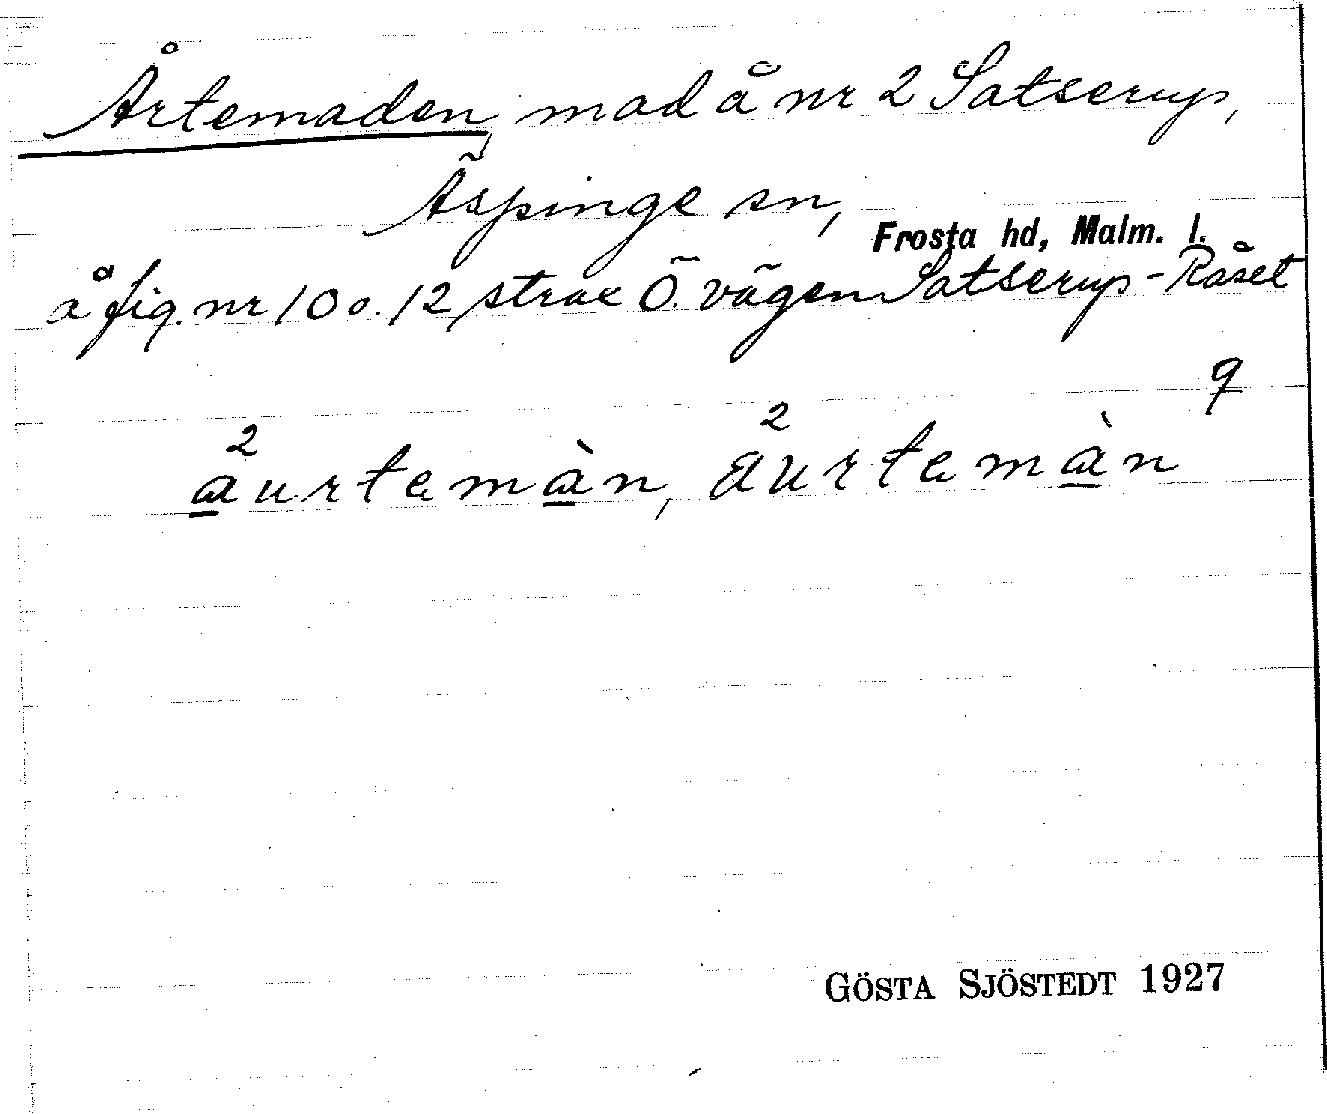 Årtemaden, mad å nr 2 Satserup,
Äspinge sn, Frosta hd, Malm. l.
å fig. nr 10 o. 12, strax Ö. vägen Satserup-Råset
q
a²urtemàn, a²urtemàn
GÖSTA SJÖSTEDT 1927